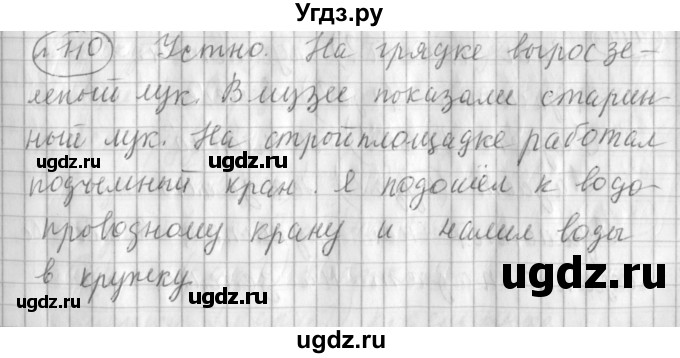 Угдз.ру
110 Устно. На грядке вырос зе-
леный лук. В музее показали старин-
ный лук. На стройплощадке работал
uGdz.ru uGdz.ru uGdz.ru
подъемный кран. Я подошёл к водо-
проводному крану и налил воды
в кружку
uGdz.ru uGdz.ru ©uGdz.ru
uGdz.ru